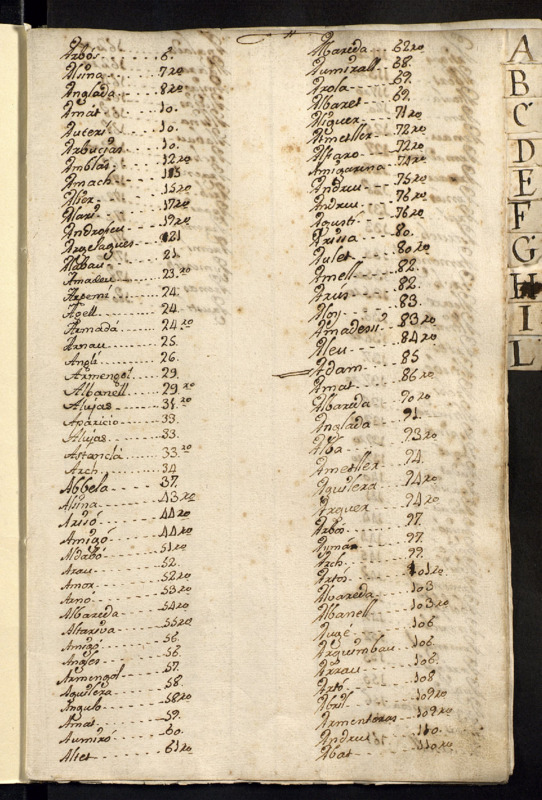 Arbós 6.
Alsina 7 20
Anglada 8 20
Amat 10.
Aucerí 10.
Arbucias 10.
Amblás 12 20
Amach 15
Alier 15 20
Alari 17 20
Androjeu 19 20
Argelagues 21
Alabau 21.
Amadeu 23. 20
Artemí 24.
Agell 24.
Armadá 24. 20
Arnau 25.
Anglí 26.
Armengol 29.
Albanell 29. 20
Alujas 31. 20
Aparicio 33.
Alujas 33.
Astanclá 33. 20
Arch 34
Abbela 37.
Alsina 43 20
Arisó 44 20
Amigó 44 20
Aldabó 51 20
Arau 52.
Amor 52 20
Arnó 53 20
Albareda 54 20
Altariva 55 20
Amigó 56.
Angles 56.
Armengol 57.
Aguilera 58.
Angulo 58 20
Amat 59.
Aumiró 60.
Aliet 61 20
Mareda 62 20
Aumirall 68.
Arola 69.
Albaret 69.
Aliguer 71 20
Ametller 72 20
Alfaro 72 20
Amigarina 74 20
Andreu 75 20
Andreu 76 20
Agustí 76 20
Arissa 80.
Aulet 80 20
Amell 82.
Arús 82.
Aloy 83.
Amadeu 83 20
Aleu 84 20
Adam 85
Amat 86 20
Albareda 90 20
Anglada 91.
Alba 93 20
Ametller 94.
Aguilera 94 20
Arquer 94 20
Arbós 97.
Aymar 97.
Arch 99.
Artós 101 20
Albareda 103
Albanell 103 20
Augé 106
Arquimbau 106.
Arrau 106.
Artó 108
Abril 109 20
Armenteras 109 20
Andreu 110.
Abat 110 20
A
B
C
D
E
F
G
H
I
L